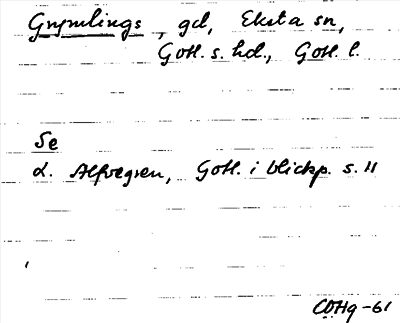 Grymlings, gd, Eksta sn,
Gotl. s. hd., Gotl. l.
Se
L. Alfvegren, Gotl. i blickp. s. 11
COHg -61